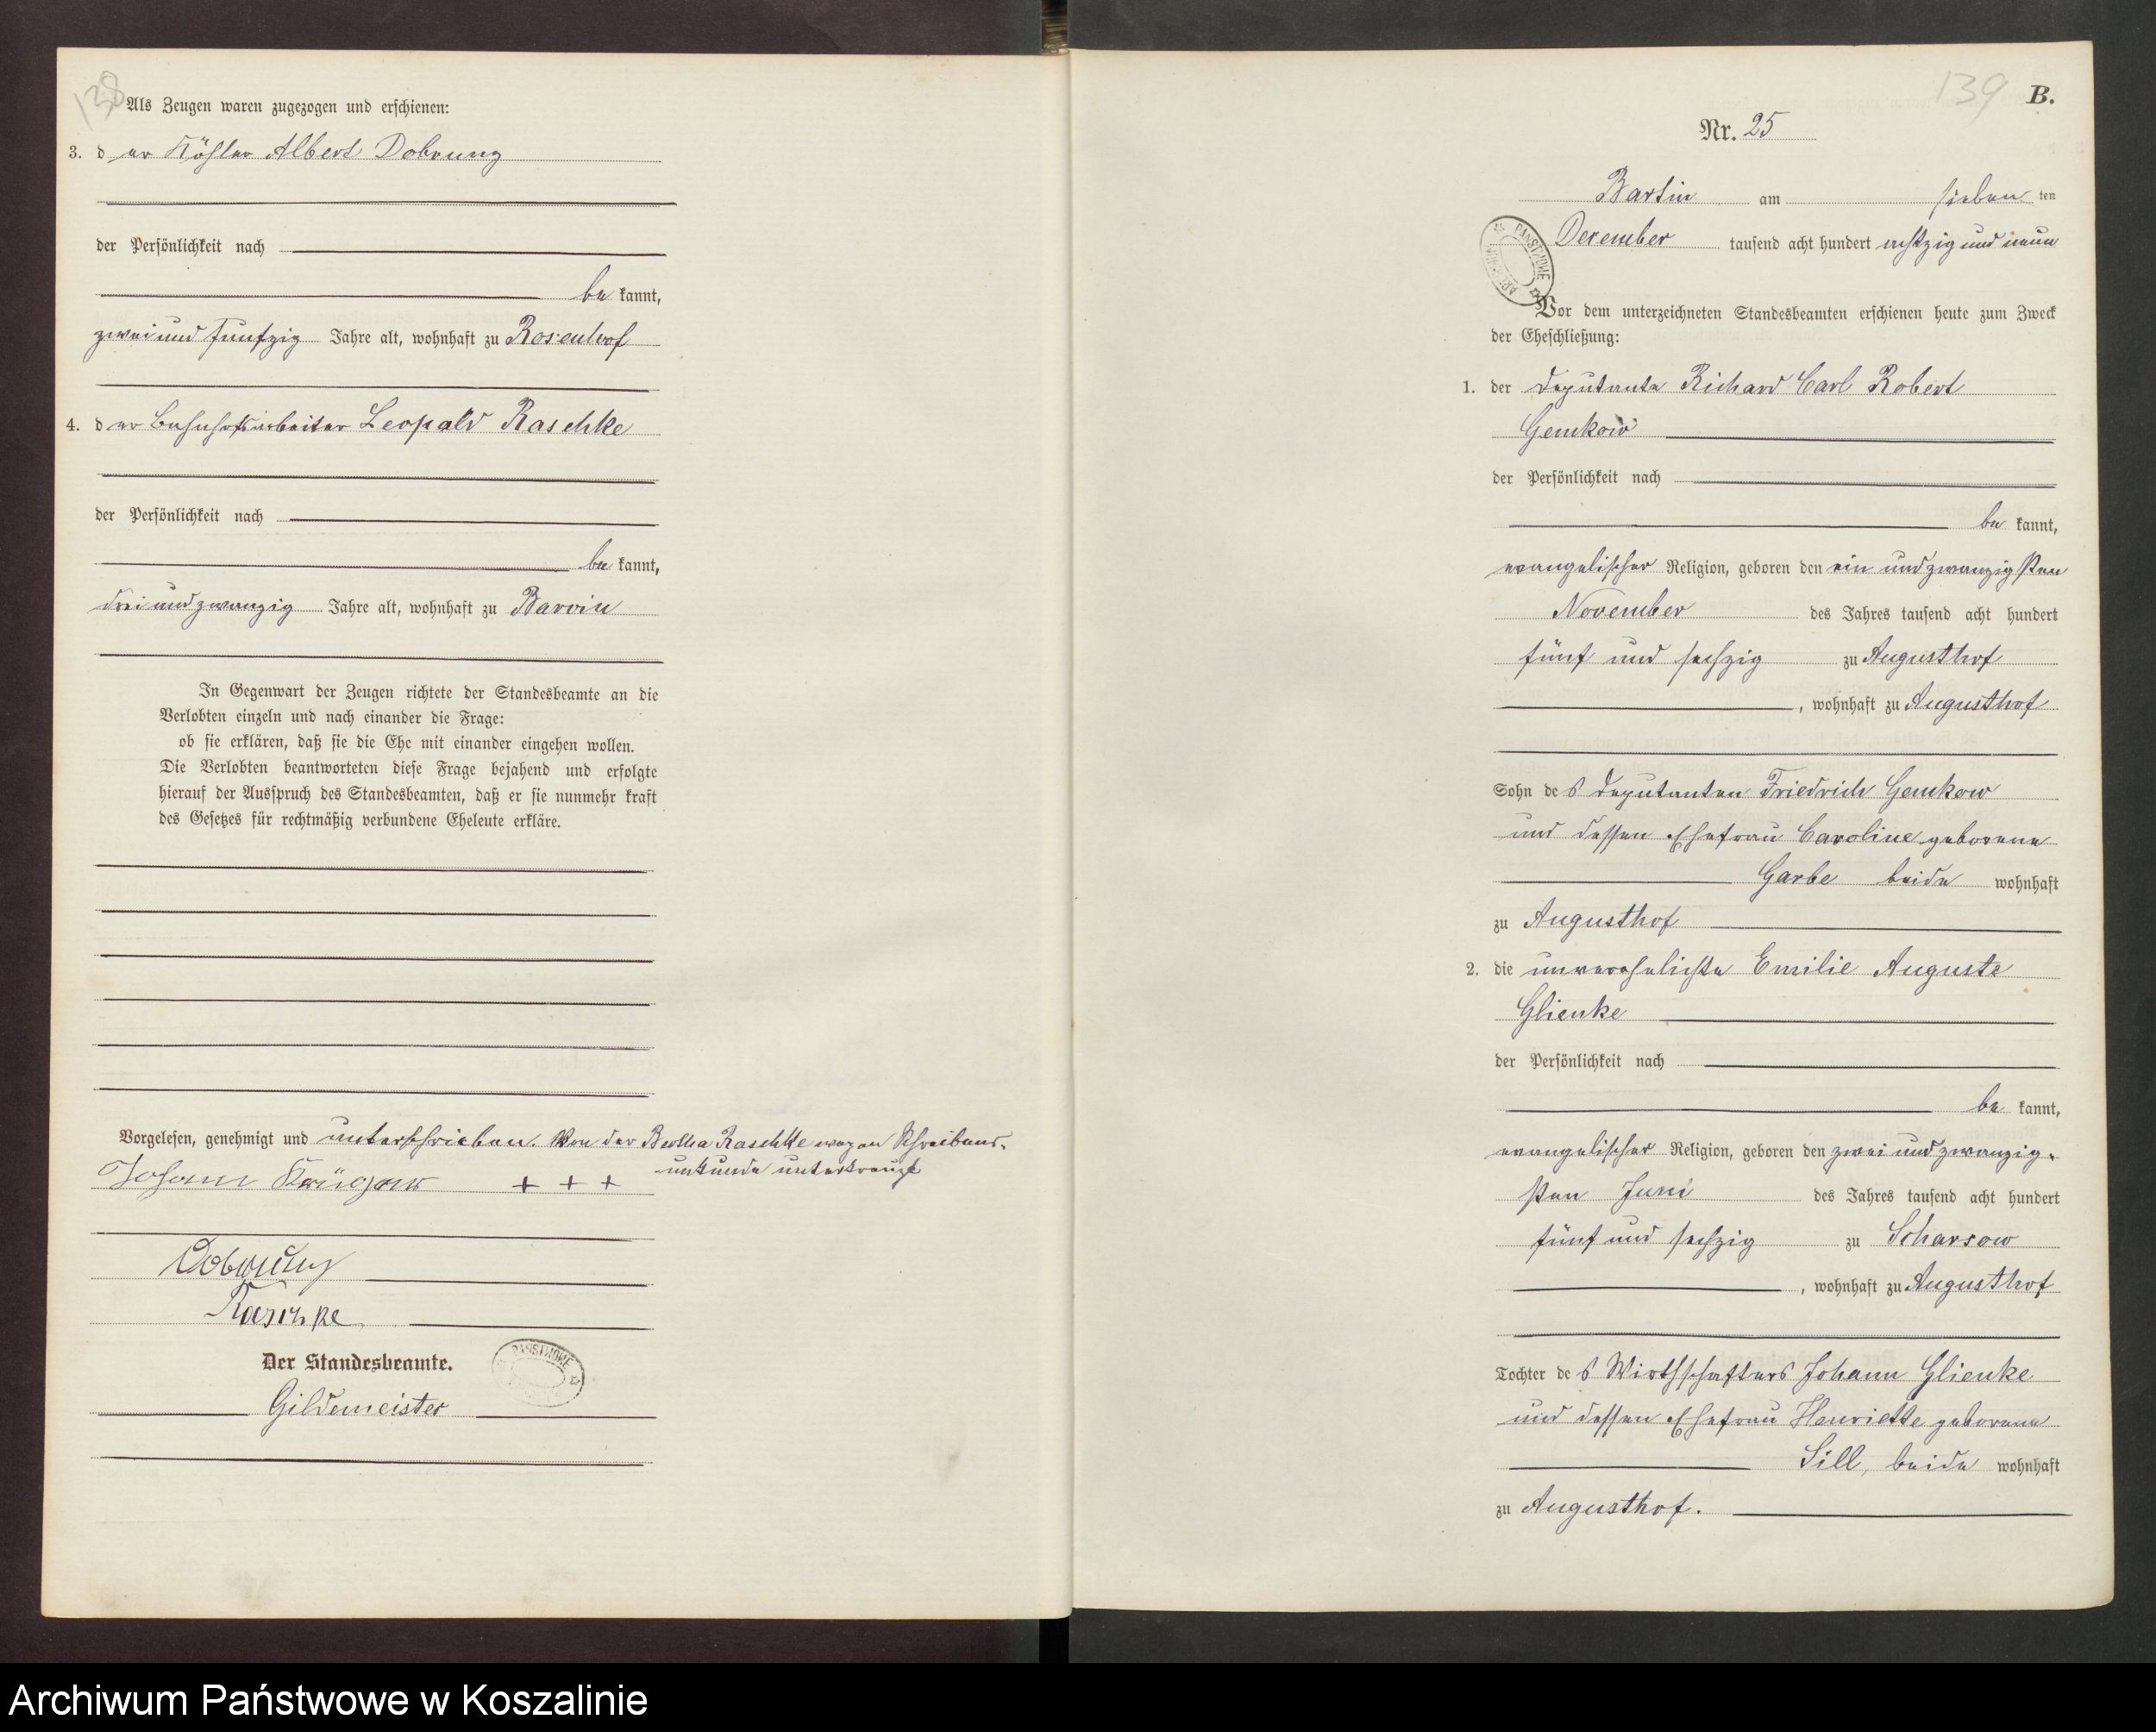 138
Als Zeugen waren zugezogen und erschienen:
3. der Köhler Albert Dobrung
der Persönlichkeit nach
be kannt,
zwei und fünfzig Jahre alt, wohnhaft zu Rosenhof
4. der Bahnhofsarbeiter Leopold Raschke
der Persönlichkeit nach
be kannt,
drei und zwanzig Jahre alt, wohnhaft zu Barvin
In Gegenwart der Zeugen richtete der Standesbeamte an die
Verlobten einzeln und nach einander die Frage:
ob sie erklären, daß sie die Ehe mit einander eingehen wollen.
Die Verlobten beantworteten diese Frage bejahend und erfolgte
hierauf der Ausspruch des Standesbeamten, daß er sie nunmehr kraft
des Gesetzes für rechtmäßig verbundene Eheleute erkläre.
Vorgelesen, genehmigt und unterschrieben. Von der Bertha Raschke wegen Schreibens-
unkunde unterkreuzt
Johann + + +
Dobrung
Raschke
Der Standesbeamte.
Gildemeister
139 B.
Nr. 25
Bartin am sieben ten
December tausend acht hundert achtzig und neun
Vor dem unterzeichneten Standesbeamten erschienen heute zum Zweck
der Eheschließung:
1. der Deputante Richard Carl Robert
Gemkow
der Persönlichkeit nach
be kannt,
evangelischer Religion, geboren den ein und zwanzigsten
November des Jahres tausend acht hundert
fünf und sechzig zu Augusthof
, wohnhaft zu Augusthof
Sohn des Deputanten Friedrich Gemkow
und dessen Ehefrau Caroline geborene
Garbe beide wohnhaft
zu Augusthof
2. die unverehelichte Emilie Auguste
Glienke
der Persönlichkeit nach
be kannt,
evangelischer Religion, geboren den zwei und zwanzig-
sten Juni des Jahres tausend acht hundert
fünf und sechzig zu Scharsow
, wohnhaft zu Augusthof
Tochter des Wirthschafters Johann Glienke
und dessen Ehefrau Henriette geborene
Sill, beide wohnhaft
zu Augusthof.
Archiwum Państwowe w Koszalinie